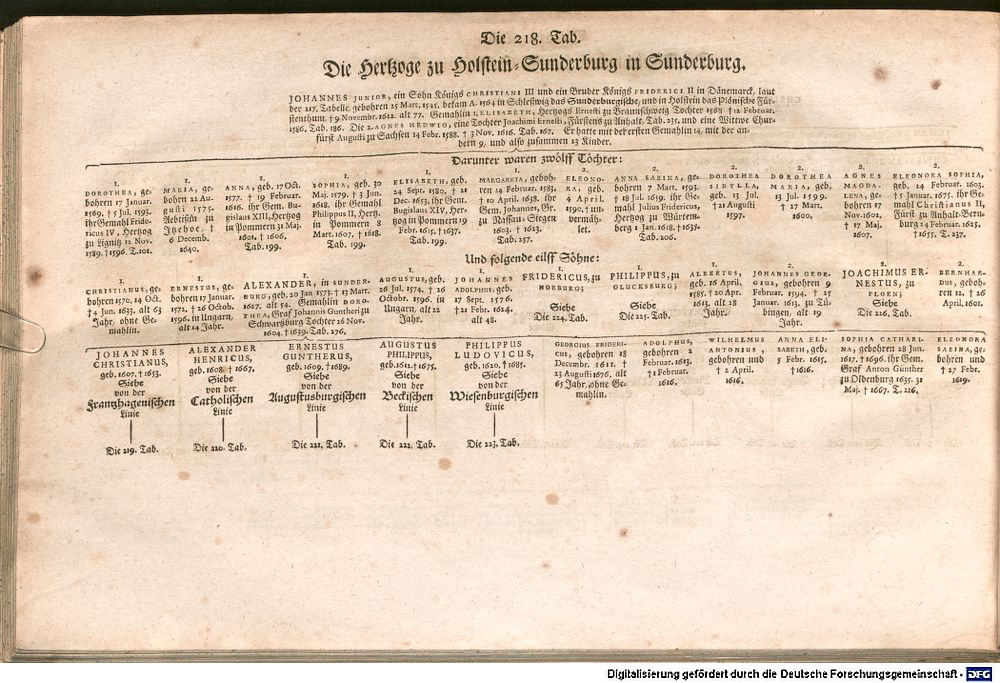 Die 218. Tab.
Die Hertzoge zu Holstein-Sunderburg in Sunderburg.
JOHANNES JUNIOR, ein Sohn Königs CHRISTIANI III und ein Bruder Königs FRIDERICI II in Dänemarck, laut
der 217. Tabelle, gebohren 25 Mart. 1545. bekam A. 1564 in Schleßwig das Sunderburgische, und in Holstein das Plönische Für-
stenthum, † 9 Novembr. 1622. alt 77. Gemahlin 1. ELISABETH, Hertzogs Ernesti zu Braunschweig Tochter 1568 † 12 Februar.
1586. Tab. 186. Die 2. AGNES HEDWIG, eine Tochter Joachimi Ernesti, Fürstens zu Anhalt. Tab. 235. und eine Wittwe Chur-
fürst Augusti zu Sachsen 14 Febr. 1588. † 3 Nov. 1616. Tab. 167. Er hatte mit der ersten Gemahlin 14, mit der an-
dern 9, und also zusammen 23 Kinder.
Darunter waren zwölff Töchter:
1.
DOROTHEA, ge-
bohren 17 Januar.
1569, † 5 Jul. 1593.
ihr Gemahl Fride-
ricus IV, Hertzog
zu Lignitz 12 Nov.
1589. † 1596. T. 101.
1.
MARIA, ge-
bohren 22 Au-
gusti 1575.
Aebtißin zu
Itzehoe, †
6 Decemb.
1640.
1.
ANNA, geb. 17 Oct.
1577. † 19 Februar.
1616. ihr Gem. Bu-
gislaus XIII, Hertzog
in Pommern 31 Maj.
1601. † 1606,
Tab. 199.
1.
SOPHIA, geb. 30
Maj. 1579. † 3 Jun.
1618. ihr Gemahl
Philippus II, Hertz.
in Pommern 8
Mart. 1607. † 1618.
Tab. 199.
1.
ELISABETH, geb.
24 Sept. 1580, † 21
Dec. 1653, ihr Gem.
Bugislaus XIV, Her-
zog in Pommern 19
Febr. 1615. † 1637.
Tab. 199.
1.
MARGARETA, geboh-
ren 24 Februar. 1583,
† 10 April. 1638, ihr
Gem. Johannes, Gr.
zu Nassau-Siegen
1603. † 1623.
Tab. 257.
2.
ELEONO-
RA, geb.
4 April.
1590, † un-
vermäh-
let.
2.
ANNA SABINA, ge-
bohren 7 Mart. 1593.
† 18 Jul. 1659. ihr Ge-
mahl Julius Fridericus,
Hertzog zu Würtem-
berg 1 Jan. 1618. † 1635.
Tab. 206.
2.
DOROTHEA
SIBYLLA,
geb. 13 Jul.
† 21 Augusti
1597.
2.
DOROTHEA
MARIA, geb.
13 Jul. 1599.
† 27 Mart.
1600.
2.
AGNES
MAGDA-
LENA, ge-
bohren 17
Nov. 1602.
† 17 Maj.
1607.
2.
ELEONORA SOPHIA,
geb. 14 Februar. 1603,
† 5 Januar. 1675. ihr Ge-
mahl Christianus II,
Fürst zu Anhalt-Bern-
burg 24 Februar. 1625.
† 1655. T. 237.
Und folgende eilff Söhne:
1.
CHRISTIANUS, ge-
bohren 1570, 24 Oct.
† 4 Jun. 1633. alt 63
Jahr, ohne Ge-
mahlin.
1.
ERNESTUS, ge-
bohren 17 Januar.
1572. † 26 Octob.
1596. in Ungarn,
alt 24 Jahr.
1.
ALEXANDER, in SUNDER-
BURG, geb. 20 Jan. 1573. † 13 Mart.
1627. alt 54. Gemahlin DORO-
THEA, Graf Johannis Guntheri zu
Schwartzburg Tochter 26 Nov.
1604. † 1639. Tab. 276.
1.
AUGUSTUS, geb.
26 Jul. 1574. † 26
Octobr. 1596. in
Ungarn, alt 22
Jahr.
1.
JOHANNES
ADOLPHUS, geb.
17 Sept. 1576.
† 21 Febr. 1624.
alt 48.
1.
FRIDERICUS, zu
NORBURG;
Siehe
Die 224. Tab.
1.
PHILIPPUS, zu
GLUCKSBURG;
Siehe
Die 225. Tab.
1.
ALBERTUS,
geb. 16 April.
1585. † 20 Apr.
1613. alt 28
Jahr.
2.
JOHANNES GEOR-
GIUS, gebohren 9
Februar. 1594. † 25
Januar. 1613. zu Tü-
bingen, alt 19
Jahr.
2.
JOACHIMUS ER-
NESTUS, zu
PLOEN;
Siehe
Die 226. Tab.
2.
BERNHAR-
DUS, geboh-
ren 12. † 26
April. 1601.
JOHANNES
CHRISTIANUS,
geb. 1607. † 1653.
Siehe
von der
Frantzhagenischen
Linie
Die 219. Tab.
ALEXANDER
HENRICUS,
geb. 1608 † 1667.
Siehe
von der
Catholischen
Linie
Die 220. Tab.
ERNESTUS
GUNTHERUS,
geb. 1609. † 1689.
Siehe
von der
Augustusburgischen
Linie
Die 221. Tab.
AUGUSTUS
PHILIPPUS,
geb. 1612. † 1675.
Siehe
von der
Beckischen
Linie
Die 222. Tab.
PHILIPPUS
LUDOVICUS,
geb. 1620. † 1685.
Siehe
von der
Wiesenburgischen
Linie
Die 223. Tab.
GEORGIUS FRIDERI-
CUS, gebohren 18
Decembr. 1611. †
23 Augusti 1676, alt
65 Jahr, ohne Ge-
mahlin.
ADOLPHUS,
gebohren 2
Februar. 1613.
† 1 Februar.
1616.
WILHELMUS
ANTONIUS,
gebohren und
† 2 April.
1616.
ANNA ELI-
SABETH, geb.
5 Febr. 1615,
† 1616.
SOPHIA CATHARI-
NA, gebohren 28 Jun.
1617, † 1696. ihr Gem.
Graf Anton Günther
zu Oldenburg 1635. 31
Maj. † 1667. T. 216.
ELEONORA
SABINA, ge-
bohren und
† 27 Febr.
1619.
Digitalisierung gefördert durch die Deutsche Forschungsgemeinschaft - DFG